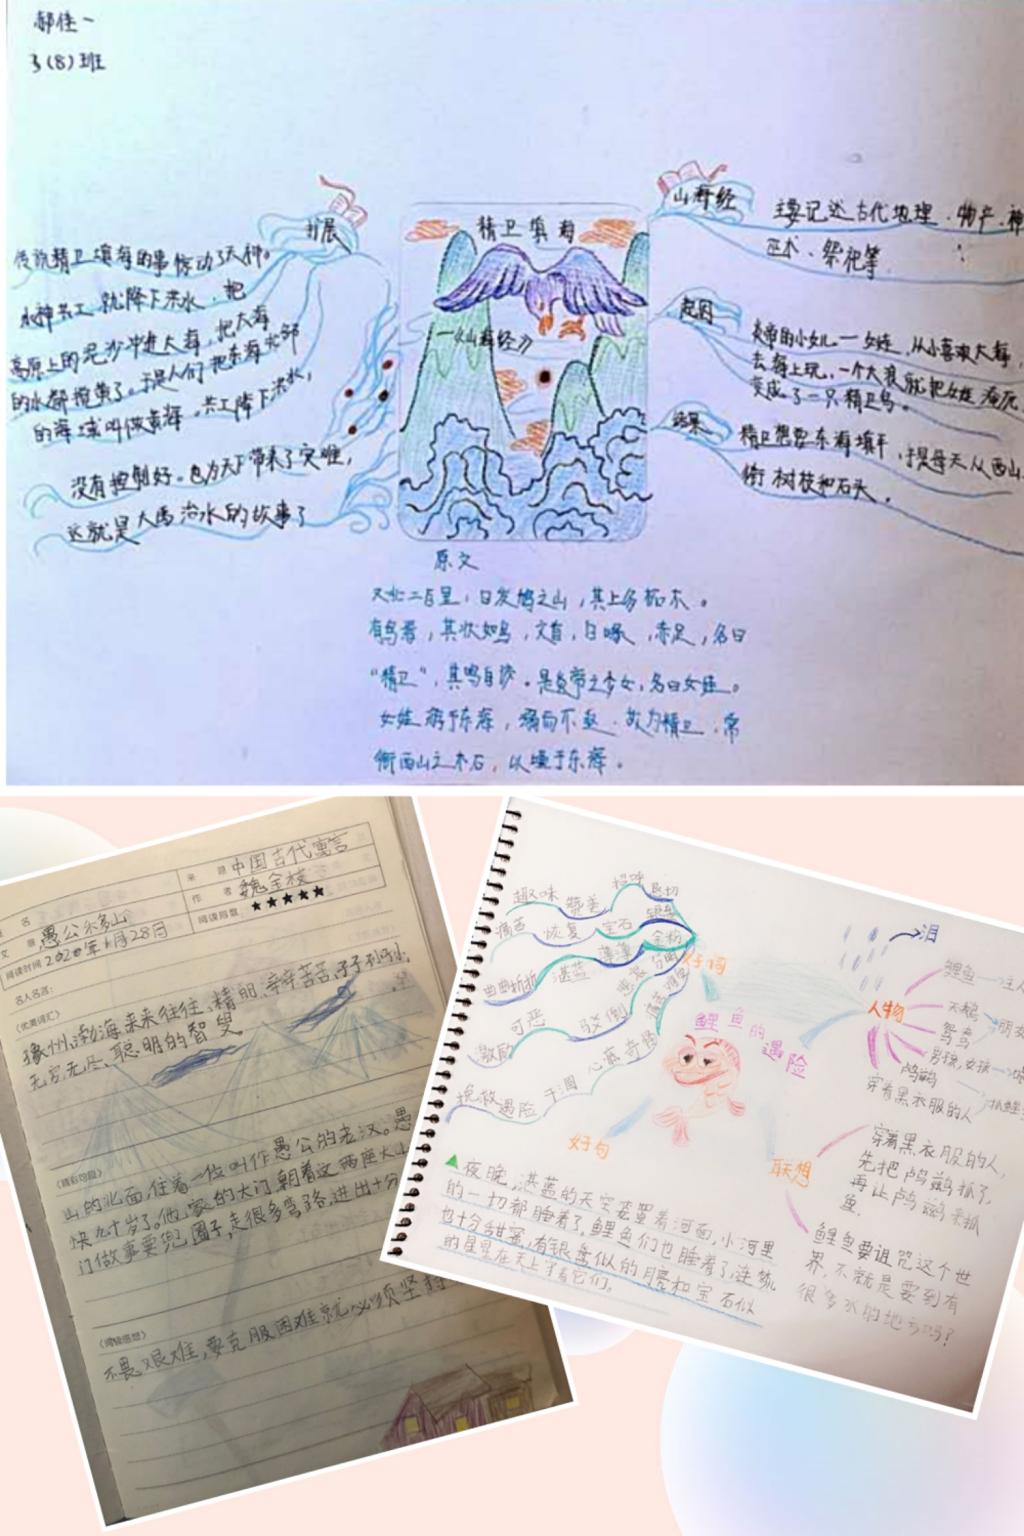 郝佳一
3(8)班
扩展
传说精卫填海的事惊动了天神。
水神共工就降下洪水,把
高原上的泥沙冲进大海,把大海
的水都搅黄了。于是人们把东海北部
的海域叫做黄海。共工降下洪水,
没有控制好。也为天下带来了灾难,
这就是大禹治水的故事了
精卫填海
—《山海经》
山海经
主要记述古代地理、物产、神
巫术、祭祀等
起因
炎帝的小女儿—女娃,从小喜欢大海,
去海上玩,一个大浪就把女娃淹死
变成了一只精卫鸟。
结果
精卫想要东海填平,于是每天从西山
衔树枝和石头。
原文
又北二百里,曰发鸠之山,其上多柘木。
有鸟焉,其状如乌,文首,白喙,赤足,名曰
“精卫”,其鸣自詨。是炎帝之少女,名曰女娃。
女娃游于东海,溺而不返,故为精卫,常
衔西山之木石,以堙于东海。
中国古代寓言
作 者 魏金枝
愚公移山
阅读时间 2020年6月28日
阅读指数 ★★★★★
名人名言:
《优美词汇》
豫州,渤海,来来往往,精明,辛辛苦苦,子子孙孙,
无穷无尽,聪明的智叟
《精彩句段》
山的北面,住着一位叫作愚公的老汉。愚
快九十岁了。他家的大门,朝着这两座大山
门做事要兜圈子,走很多弯路,进出十分
《阅读感想》
不畏艰难,要克服困难就必须坚持
鲤鱼的
遇险
趣味 赞美 招呼 良切
痛苦 恢复 宝石 银盘
曲曲折折 湛蓝 薄薄
可恶
激励
驳倒
心惊
挽救 遇险 干涸
好句
夜晚,湛蓝的天空笼罩着河面,小河里
的一切都睡着了,鲤鱼们也睡着了,连梦
也十分甜蜜,有银盘似的月亮和宝石似
的星星在天上守着它们。
泪
人物
鲤鱼—主人
天鹅
鸳鸯
朋友
男孩,女孩
鸬鹚
穿着黑衣服的人
抓鲤
联想
穿着黑衣服的人,
先把鸬鹚抓了,
再让鸬鹚来抓
鱼.
鲤鱼要诅咒这个世
界,不就是要到有
很多水的地方吗?